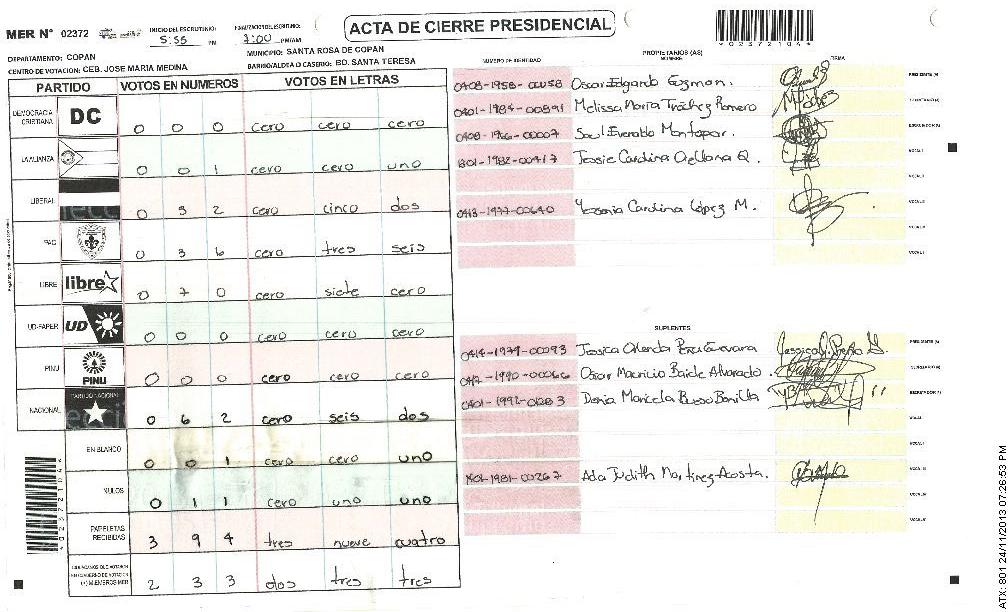 ACTA DE CIERRE PRESIDENCIAL
MER N° 02372
INICIO DEL ESCRUTINIO: 5:55 PM
FINALIZACION DEL ESCRUTINIO: 7:00 PM/AM
*02372104*
DEPARTAMENTO: COPAN
MUNICIPIO: SANTA ROSA DE COPAN
CENTRO DE VOTACION: CEB. JOSE MARIA MEDINA
BARRIO/ALDEA O CASERIO: BO. SANTA TERESA
PARTIDO VOTOS EN NUMEROS VOTOS EN LETRAS
DEMOCRACIA CRISTIANA DC 0 0 0 cero cero cero
LA ALIANZA 0 0 1 cero cero uno
LIBERAL 0 5 2 cero cinco dos
PAC 0 3 6 cero tres seis
LIBRE libre 0 7 0 cero siete cero
UD-FAPER UD 0 0 0 cero cero cero
PINU PINU 0 0 0 cero cero cero
NACIONAL PARTIDO NACIONAL 0 6 2 cero seis dos
EN BLANCO 0 0 1 cero cero uno
NULOS 0 1 1 cero uno uno
PAPELETAS RECIBIDAS 3 9 4 tres nueve cuatro
CIUDADANOS QUE VOTARON EN CUADERNO DE VOTACION (+) MIEMBROS MER 2 3 3 dos tres tres
PROPIETARIOS (AS)
NUMERO DE IDENTIDAD NOMBRE FIRMA
0408-1958-00058 Oscar Edgardo Guzman. PRESIDENTE (A)
0401-1984-00891 Melissa Maria Tróchez Romero SECRETARIO (A)
0408-1966-00007 Saul Everaldo ESCRUTADOR (A)
1801-1982-00417 Jessie Carolina Orellana Q. VOCAL I
VOCAL II
0413-1977-00640 Yessenia Carolina López M. VOCAL III
VOCAL IV
VOCAL V
SUPLENTES
0414-1979-00093 Jessica PRESIDENTE (A)
1990-00066 Oscar Mauricio Baide Alvarado. SECRETARIO (A)
0401-1992-01283 Maricela Bonilla ESCRUTADOR (A)
VOCAL I
VOCAL II
1981-00267 Ada Judith Martinez Acosta. VOCAL III
VOCAL IV
VOCAL V
ATX: 801 24/11/2013 07:26:53 PM